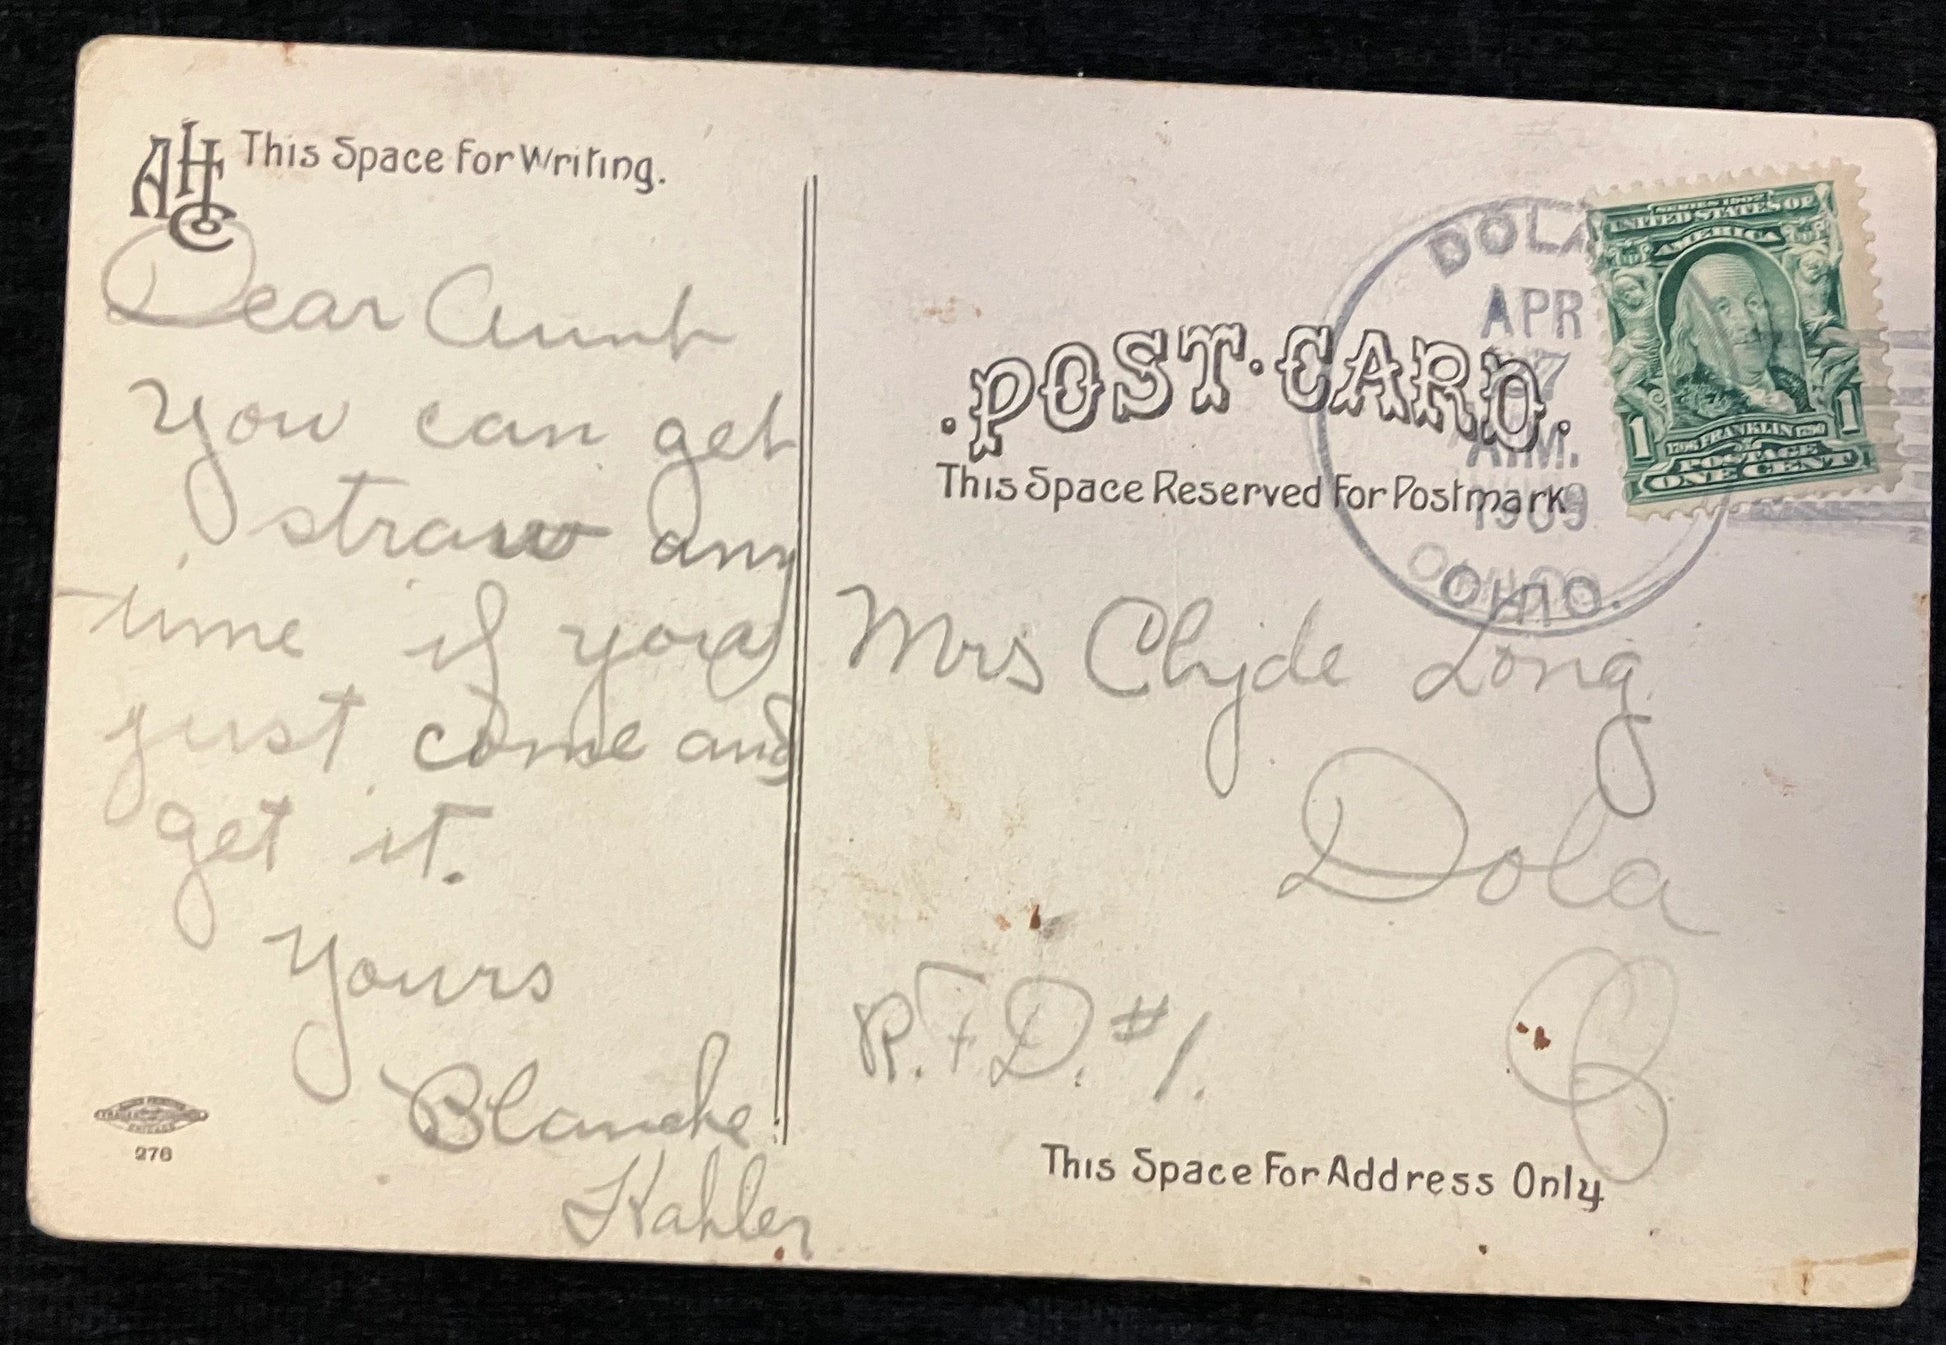 AHC
This Space For Writing.
Dear Aunt
You can get
straw any
time if you
just come and
get it.
Yours
Blanche
Kahler
276
DOLA
APR
7
A.M.
1909
OHIO.
SERIES 1902
UNITED STATES OF
AMERICA
1 1
1706 FRANKLIN 1790
POSTAGE
ONE CENT
.POST·CARD.
This Space Reserved For Postmark
Mrs Clyde Long
Dola
O
R.F.D. #1.
This Space For Address Only